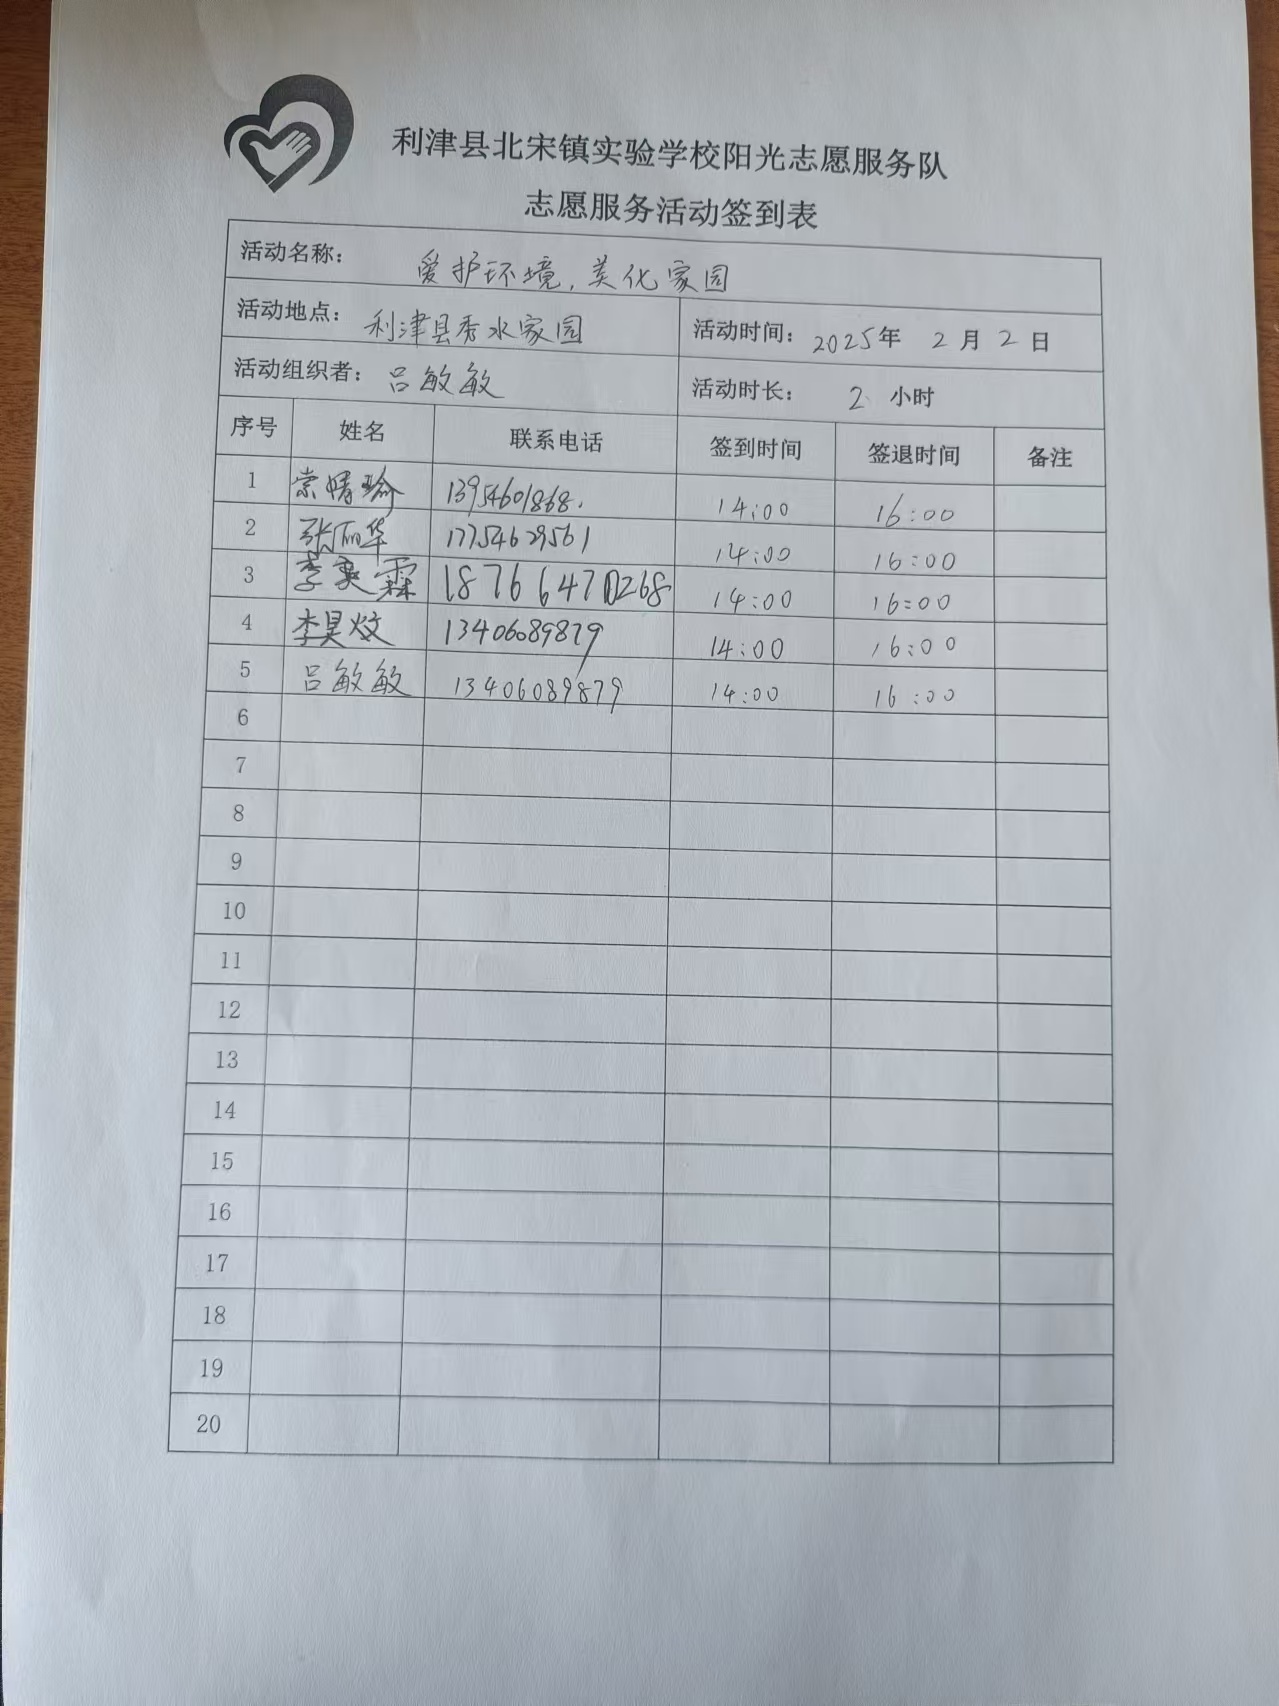 利津县北宋镇实验学校阳光志愿服务队
志愿服务活动签到表
活动名称： 爱护环境，美化家园
活动地点： 利津县秀水家园 活动时间： 2025年 2月 2日
活动组织者： 吕敏敏 活动时长： 2 小时
序号 姓名 联系电话 签到时间 签退时间 备注
1 13954601868. 14:00 16:00
2 张丽华 17754629561 14:00 16:00
3 李奕霖 18766470268 14:00 16:00
4 李昊炆 13406089879 14:00 16:00
5 吕敏敏 13406089879 14:00 16:00
6
7
8
9
10
11
12
13
14
15
16
17
18
19
20